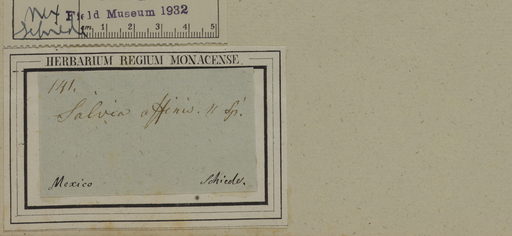 Field Museum 1932
cm 1 2 3 4 5
HERBARIUM REGIUM MONACENSE
141.
Salvia affinis. n sp.
Mexico
Schiede.